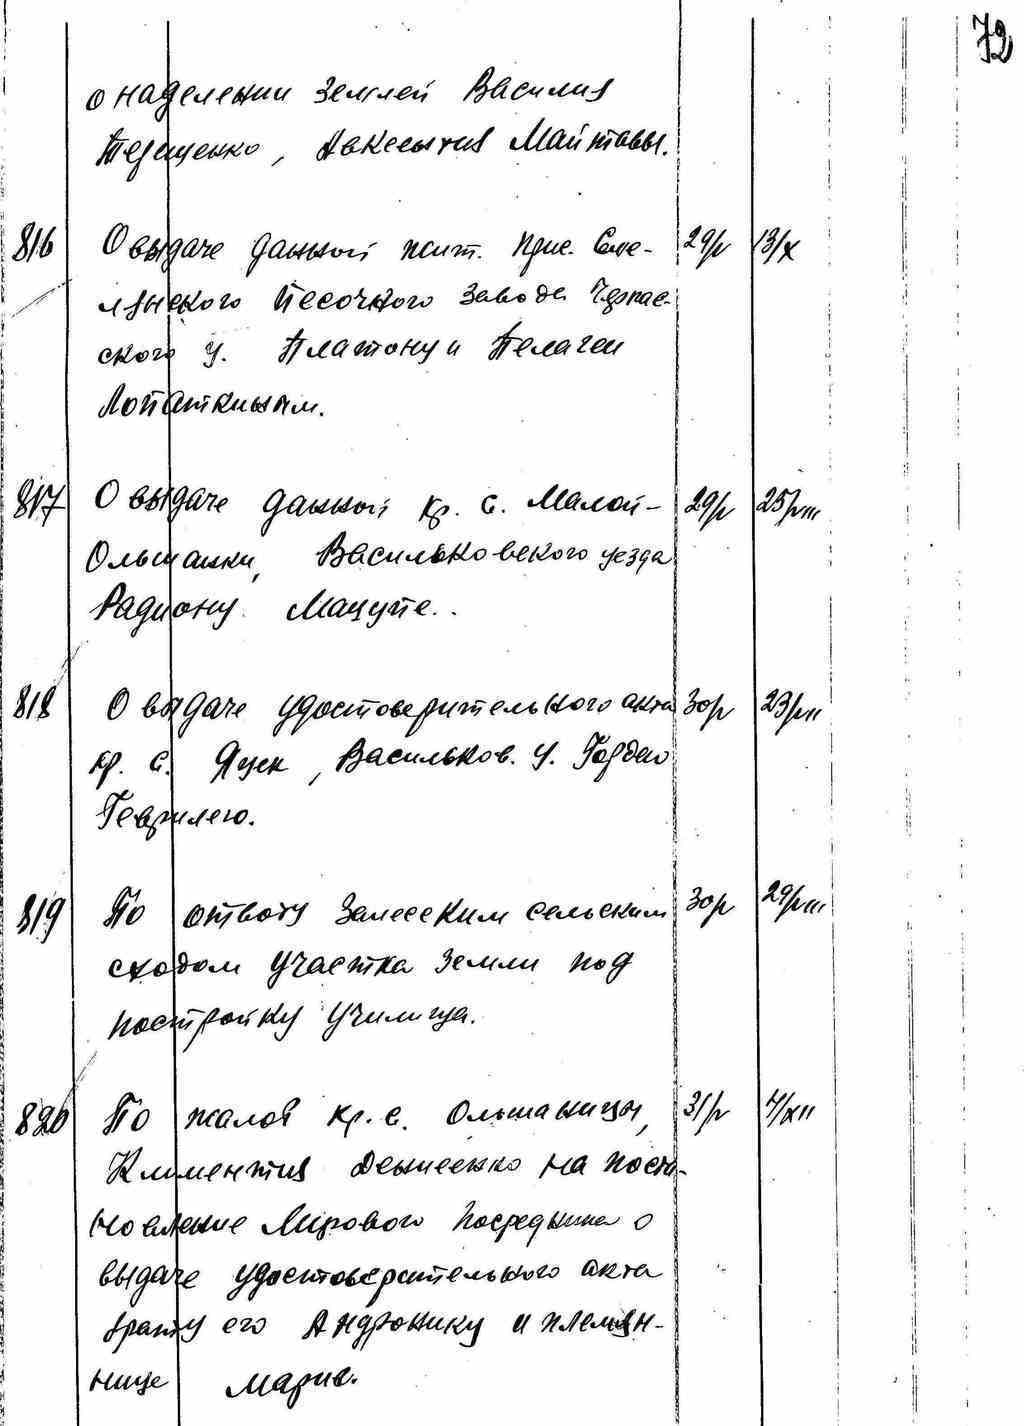 72
о наделении землей Василия
Терещенко, Авксентия Майтавы.
816 О выдаче данной жит. прис. Сме- 29/V 13/X
лянского Песочного завода Черкас-
ского у. Платону и Пелагеи
Лопаткиным.
817 О выдаче данной кр. с. Малой- 29/V 25/VIII
Ольшанки, Васильковского уезда
Радиону Мацупе.
818 О выдаче удостоверительного акта 30/V 23/VII
кр. с. Яцек, Васильков. у. Гордею
819 По отводу Залесским сельским 30/V 29/VIII
сходом участка земли под
постройку училища.
820 По жалоб кр. с. Ольшаницы, 31/V 4/XII
Климентия Денисенко на поста-
новление Мирового посредника о
выдаче удостоверительного акта
брату его Андронику и племян-
нице Марие.